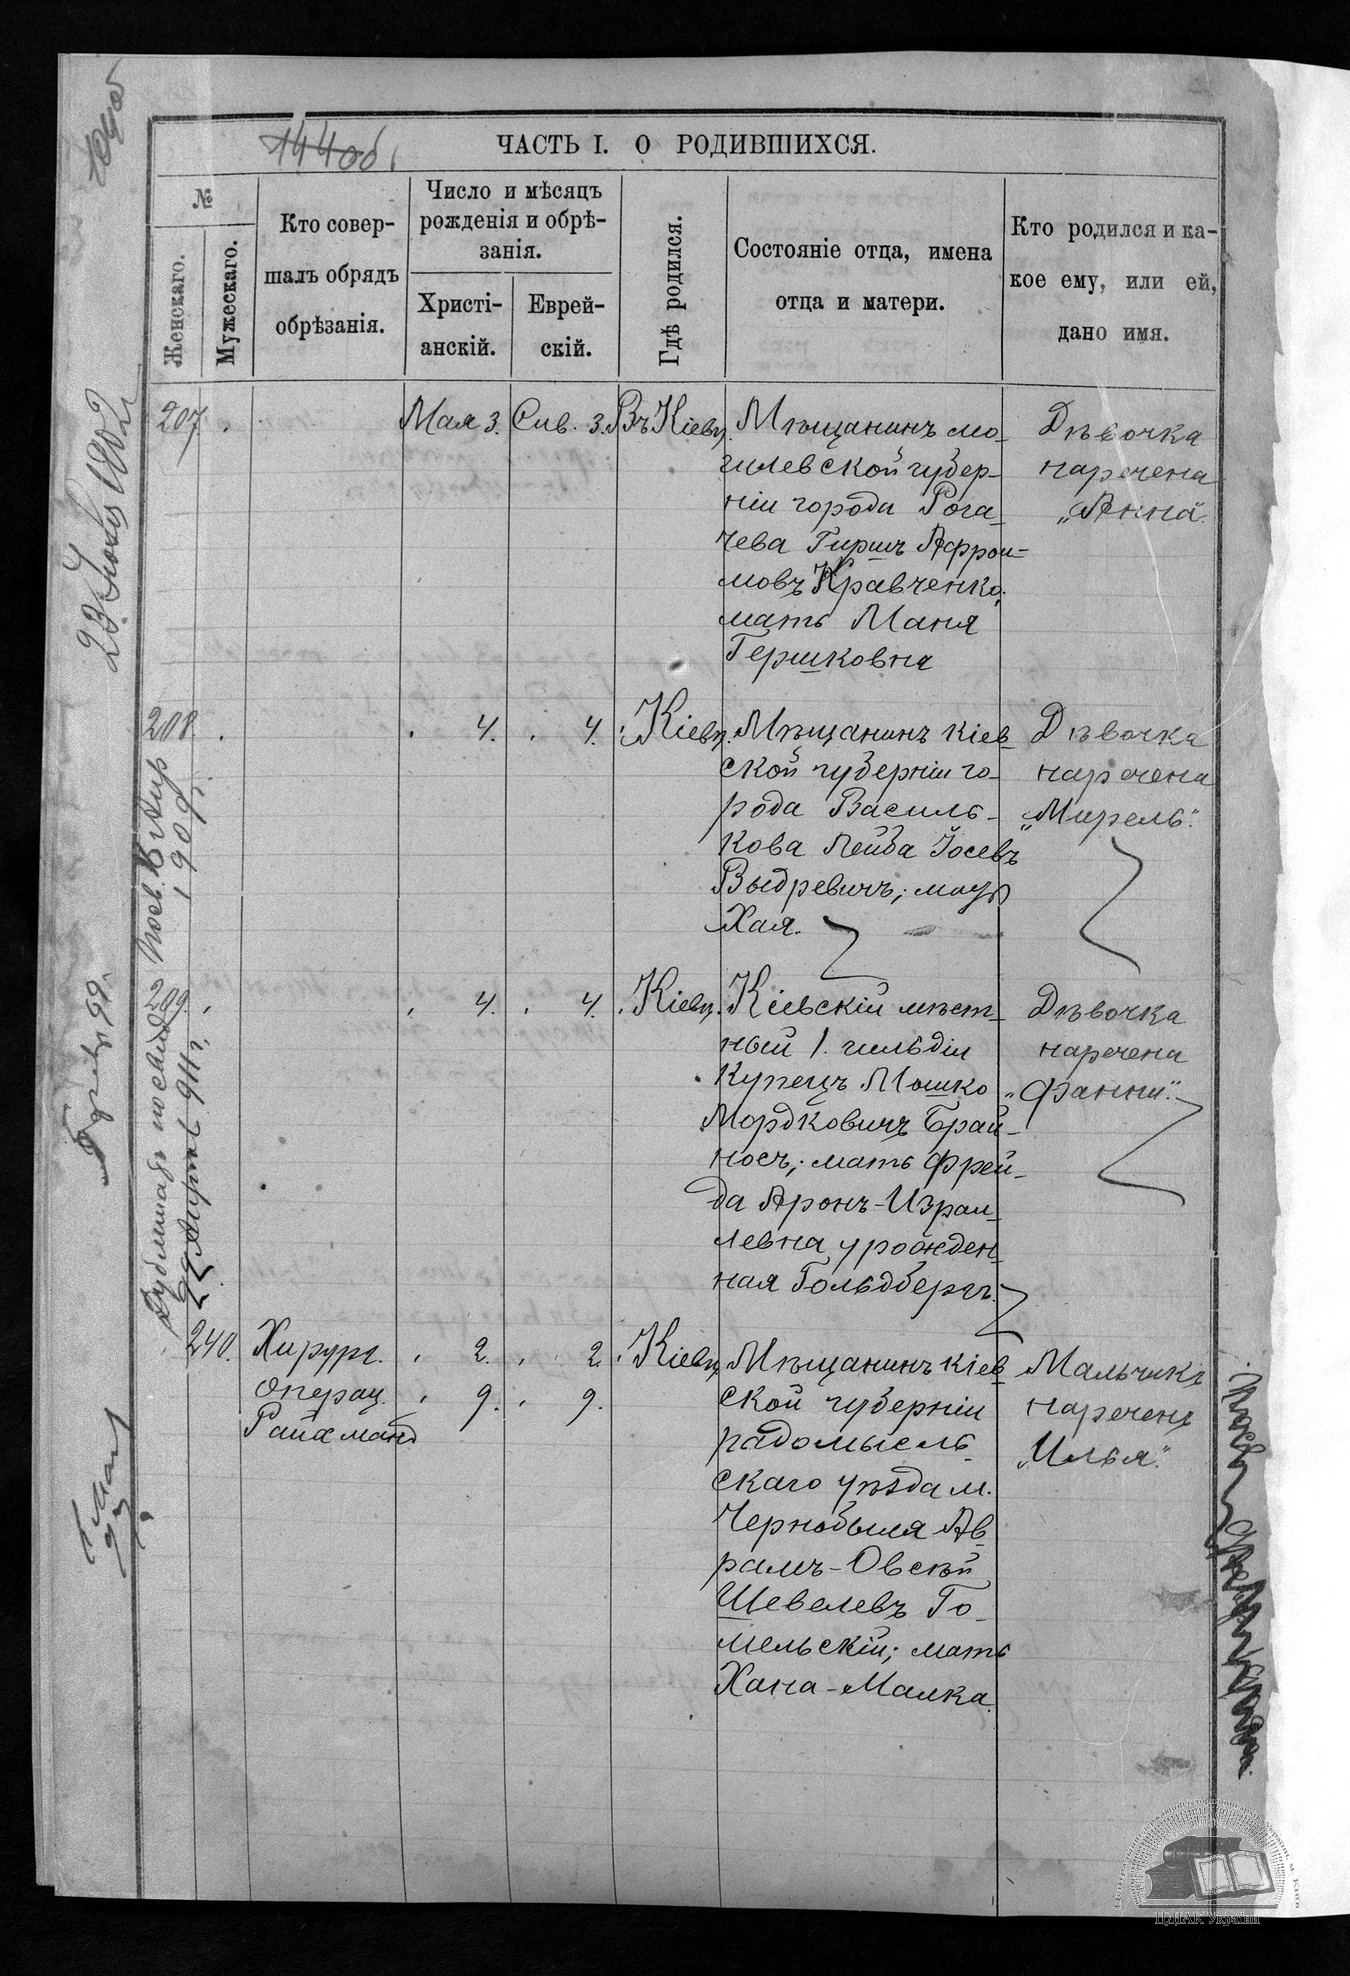 ЧАСТЬ I. О РОДИВШИХСЯ.
№
Женскаго.
Мужескаго.
Кто совер-
шалъ обрядъ
обрѣзанія.
Число и мѣсяцъ
рожденія и обрѣ-
занія.
Христі-
анскій.
Еврей-
скій.
Гдѣ родился.
Состояніе отца, имена
отца и матери.
Кто родился и ка-
кое ему, или ей,
дано имя.
207.
Мая 3.
Сив. 3.
Въ Кіевѣ.
Мѣщанинъ мо-
гилевской губер-
ніи города Рога-
чева Гиршъ Афрои-
мовъ Кравченко,
мать Маня
Гершковна
Дѣвочка
наречена
„Анна".
208.
4.
4.
Кіевѣ.
Мѣщанинъ кіев-
ской губерніи го-
рода Василь-
кова Лейба Іосевъ
Выдревичъ; мать
Хая.
Дѣвочка
наречена
„Мирель".
209.
4.
4.
Кіевѣ.
Кіевскій мѣст-
ный 1. гильдіи
купецъ Мошко
Мордковичъ Брай-
носъ; мать Фрей-
да Аронъ-Израи-
левна урожден-
ная Гольдбергъ.
Дѣвочка
наречена
„Фанни".
240.
Хирург.
операц.
Райхманъ
2.
9.
2.
9.
Кіевѣ
Мѣщанинъ кіев-
ской губерніи
радомысль-
скаго уѣзда м.
Чернобыля Ав-
рамъ-Овсѣй
Шевелевъ Го-
мельскій; мать
Хана-Малка.
Мальчикъ
нареченъ
„Илья".
1909.
911 г.
ЦДІАК України